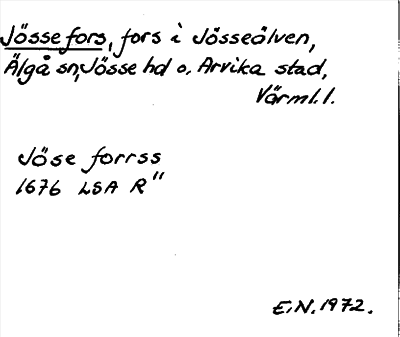 Jössefors, fors i Jösseälven,
Älgå sn, Jösse hd o. Arvika stad,
Värml. l.
Jöse forrss
1676 LSA R"
E.N. 1972.